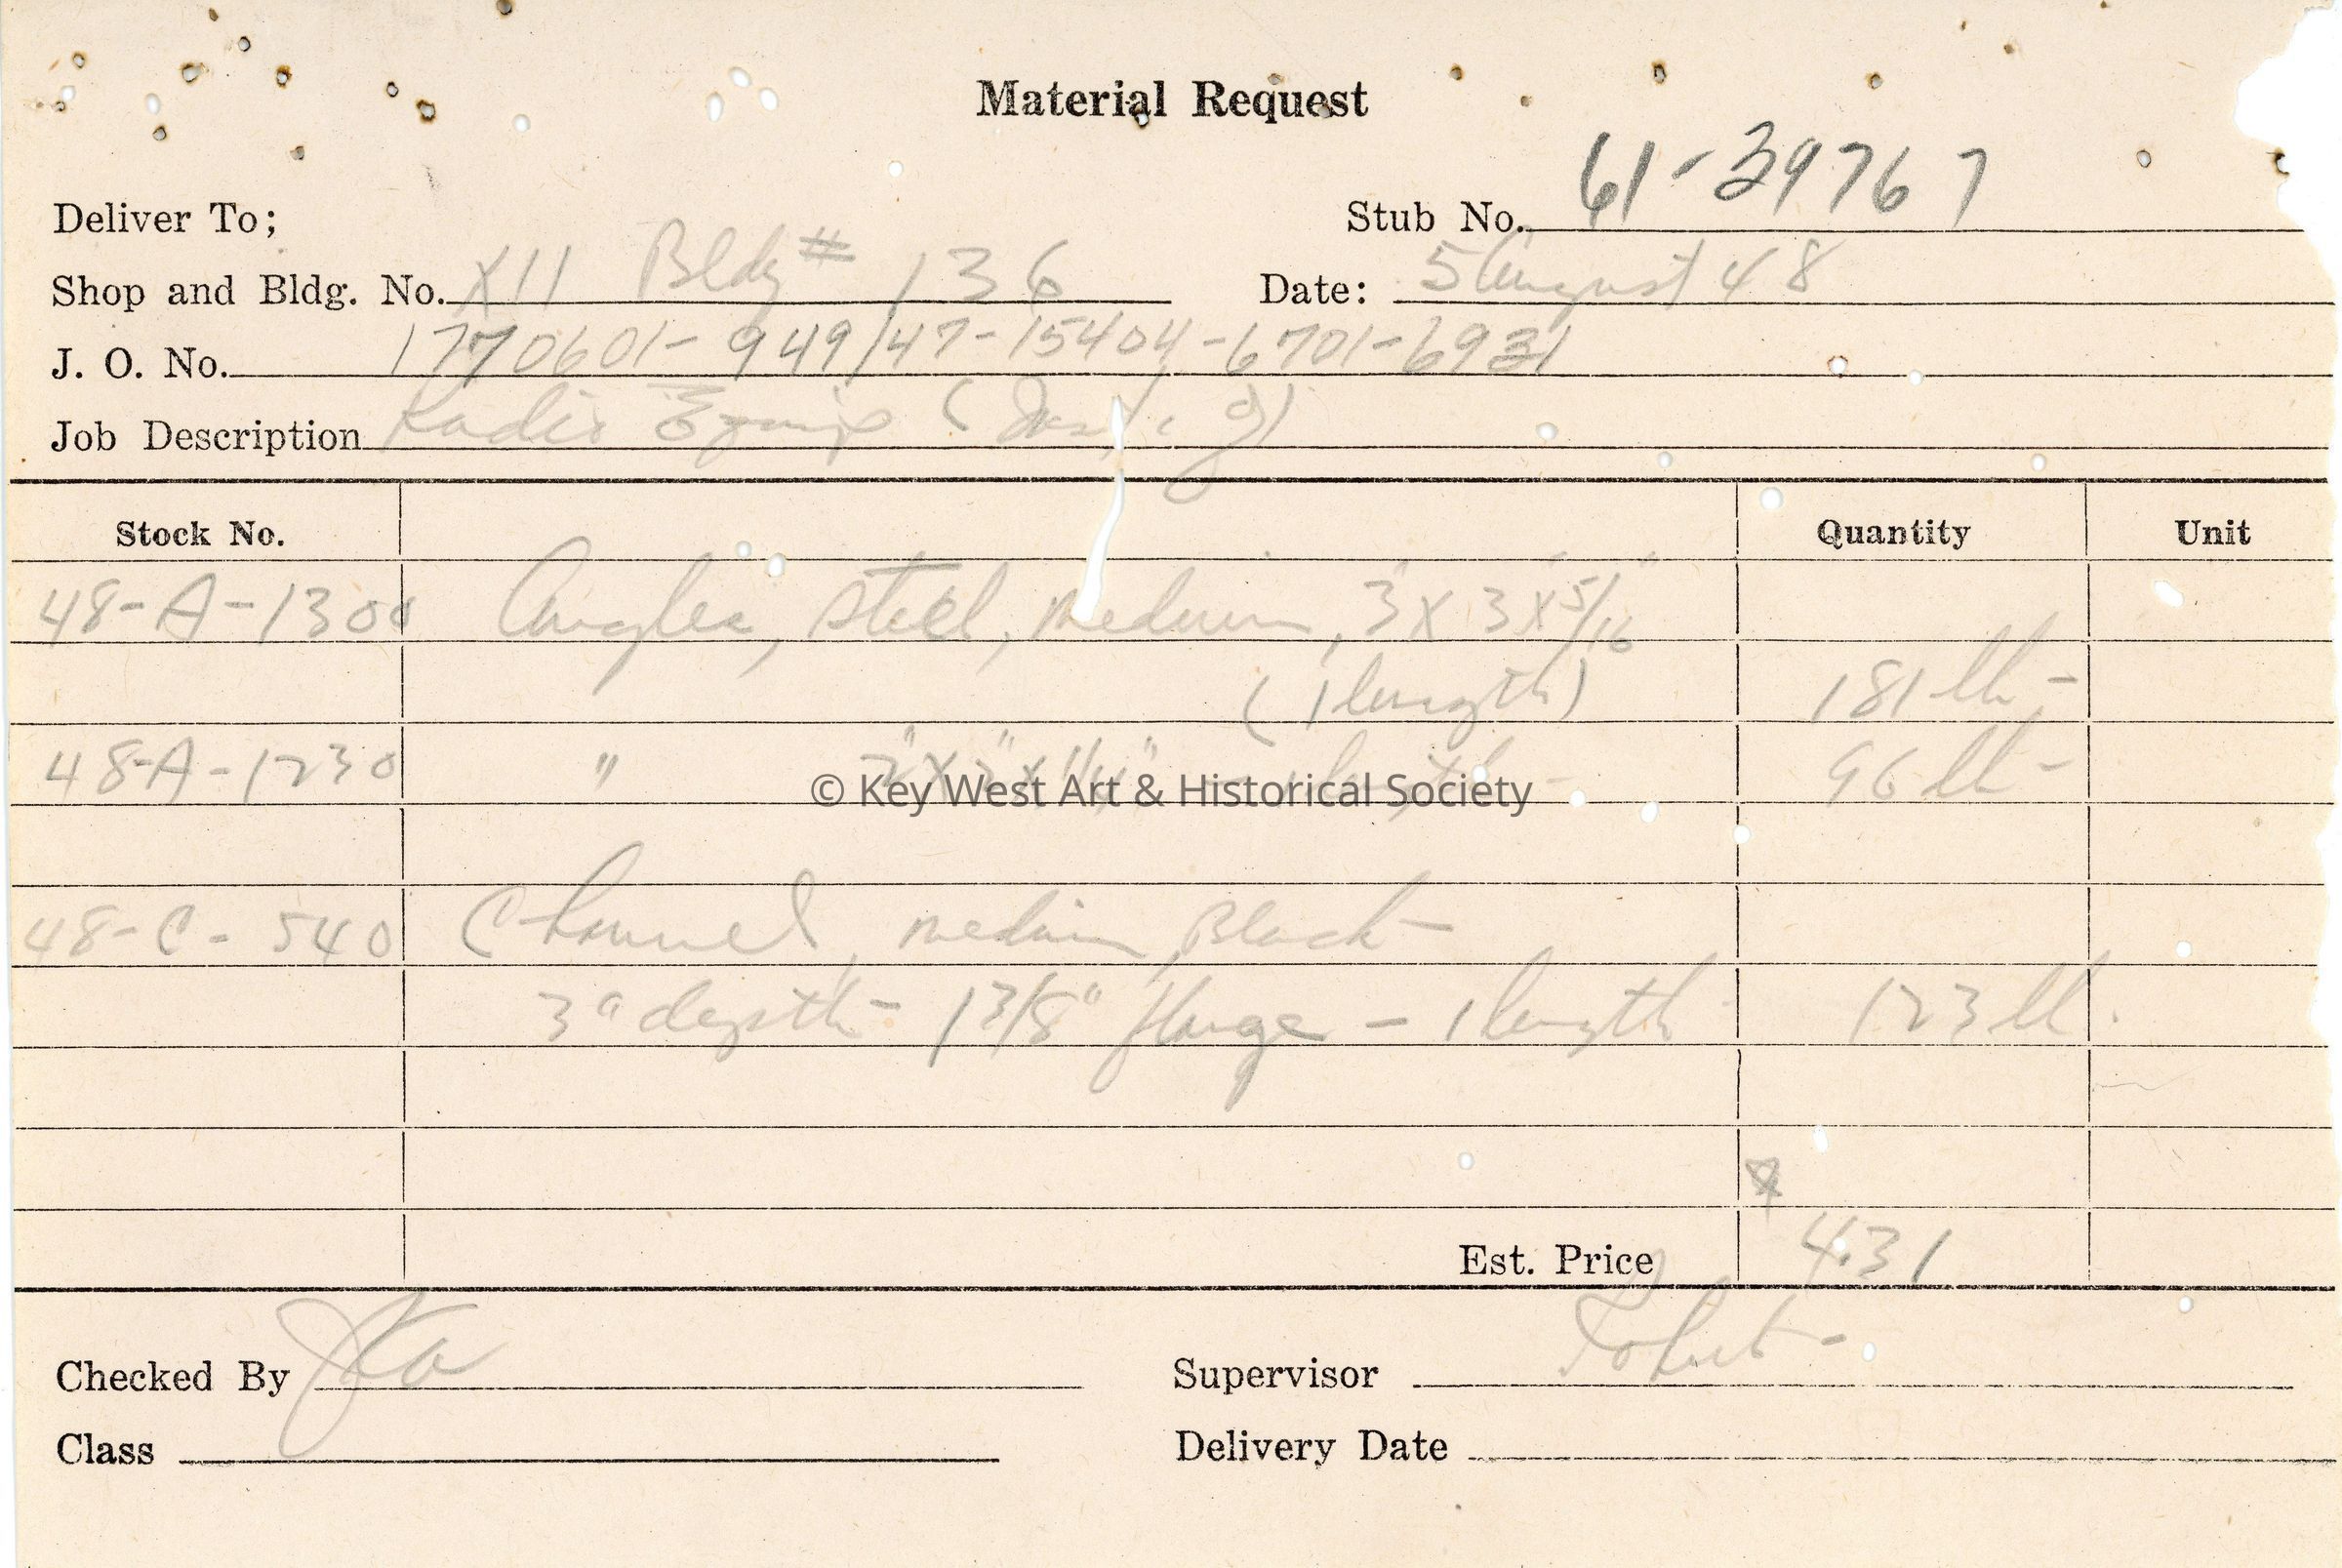 Material Request
Stub No. 61-39767
Deliver To;
Shop and Bldg. No. X11 Bldg # 136 Date: 5 August 48
J. O. No. 1770601-949/47-15404-6701-6931
Job Description Radio Equip
Stock No. Quantity Unit
48-A-1300 Angles, steel, medium, 3" X 3" X 5/16"
(1 length) 181 lb-
48-A-1230 " 2" X 2" X - 1 length - 96 lb-
© Key West Art & Historical Society
48-C-540 Channel, medium, Black-
3" depth - 1 3/8" flange - 1 length 123 lb.
Est. Price 4.31
Checked By Supervisor
Class Delivery Date